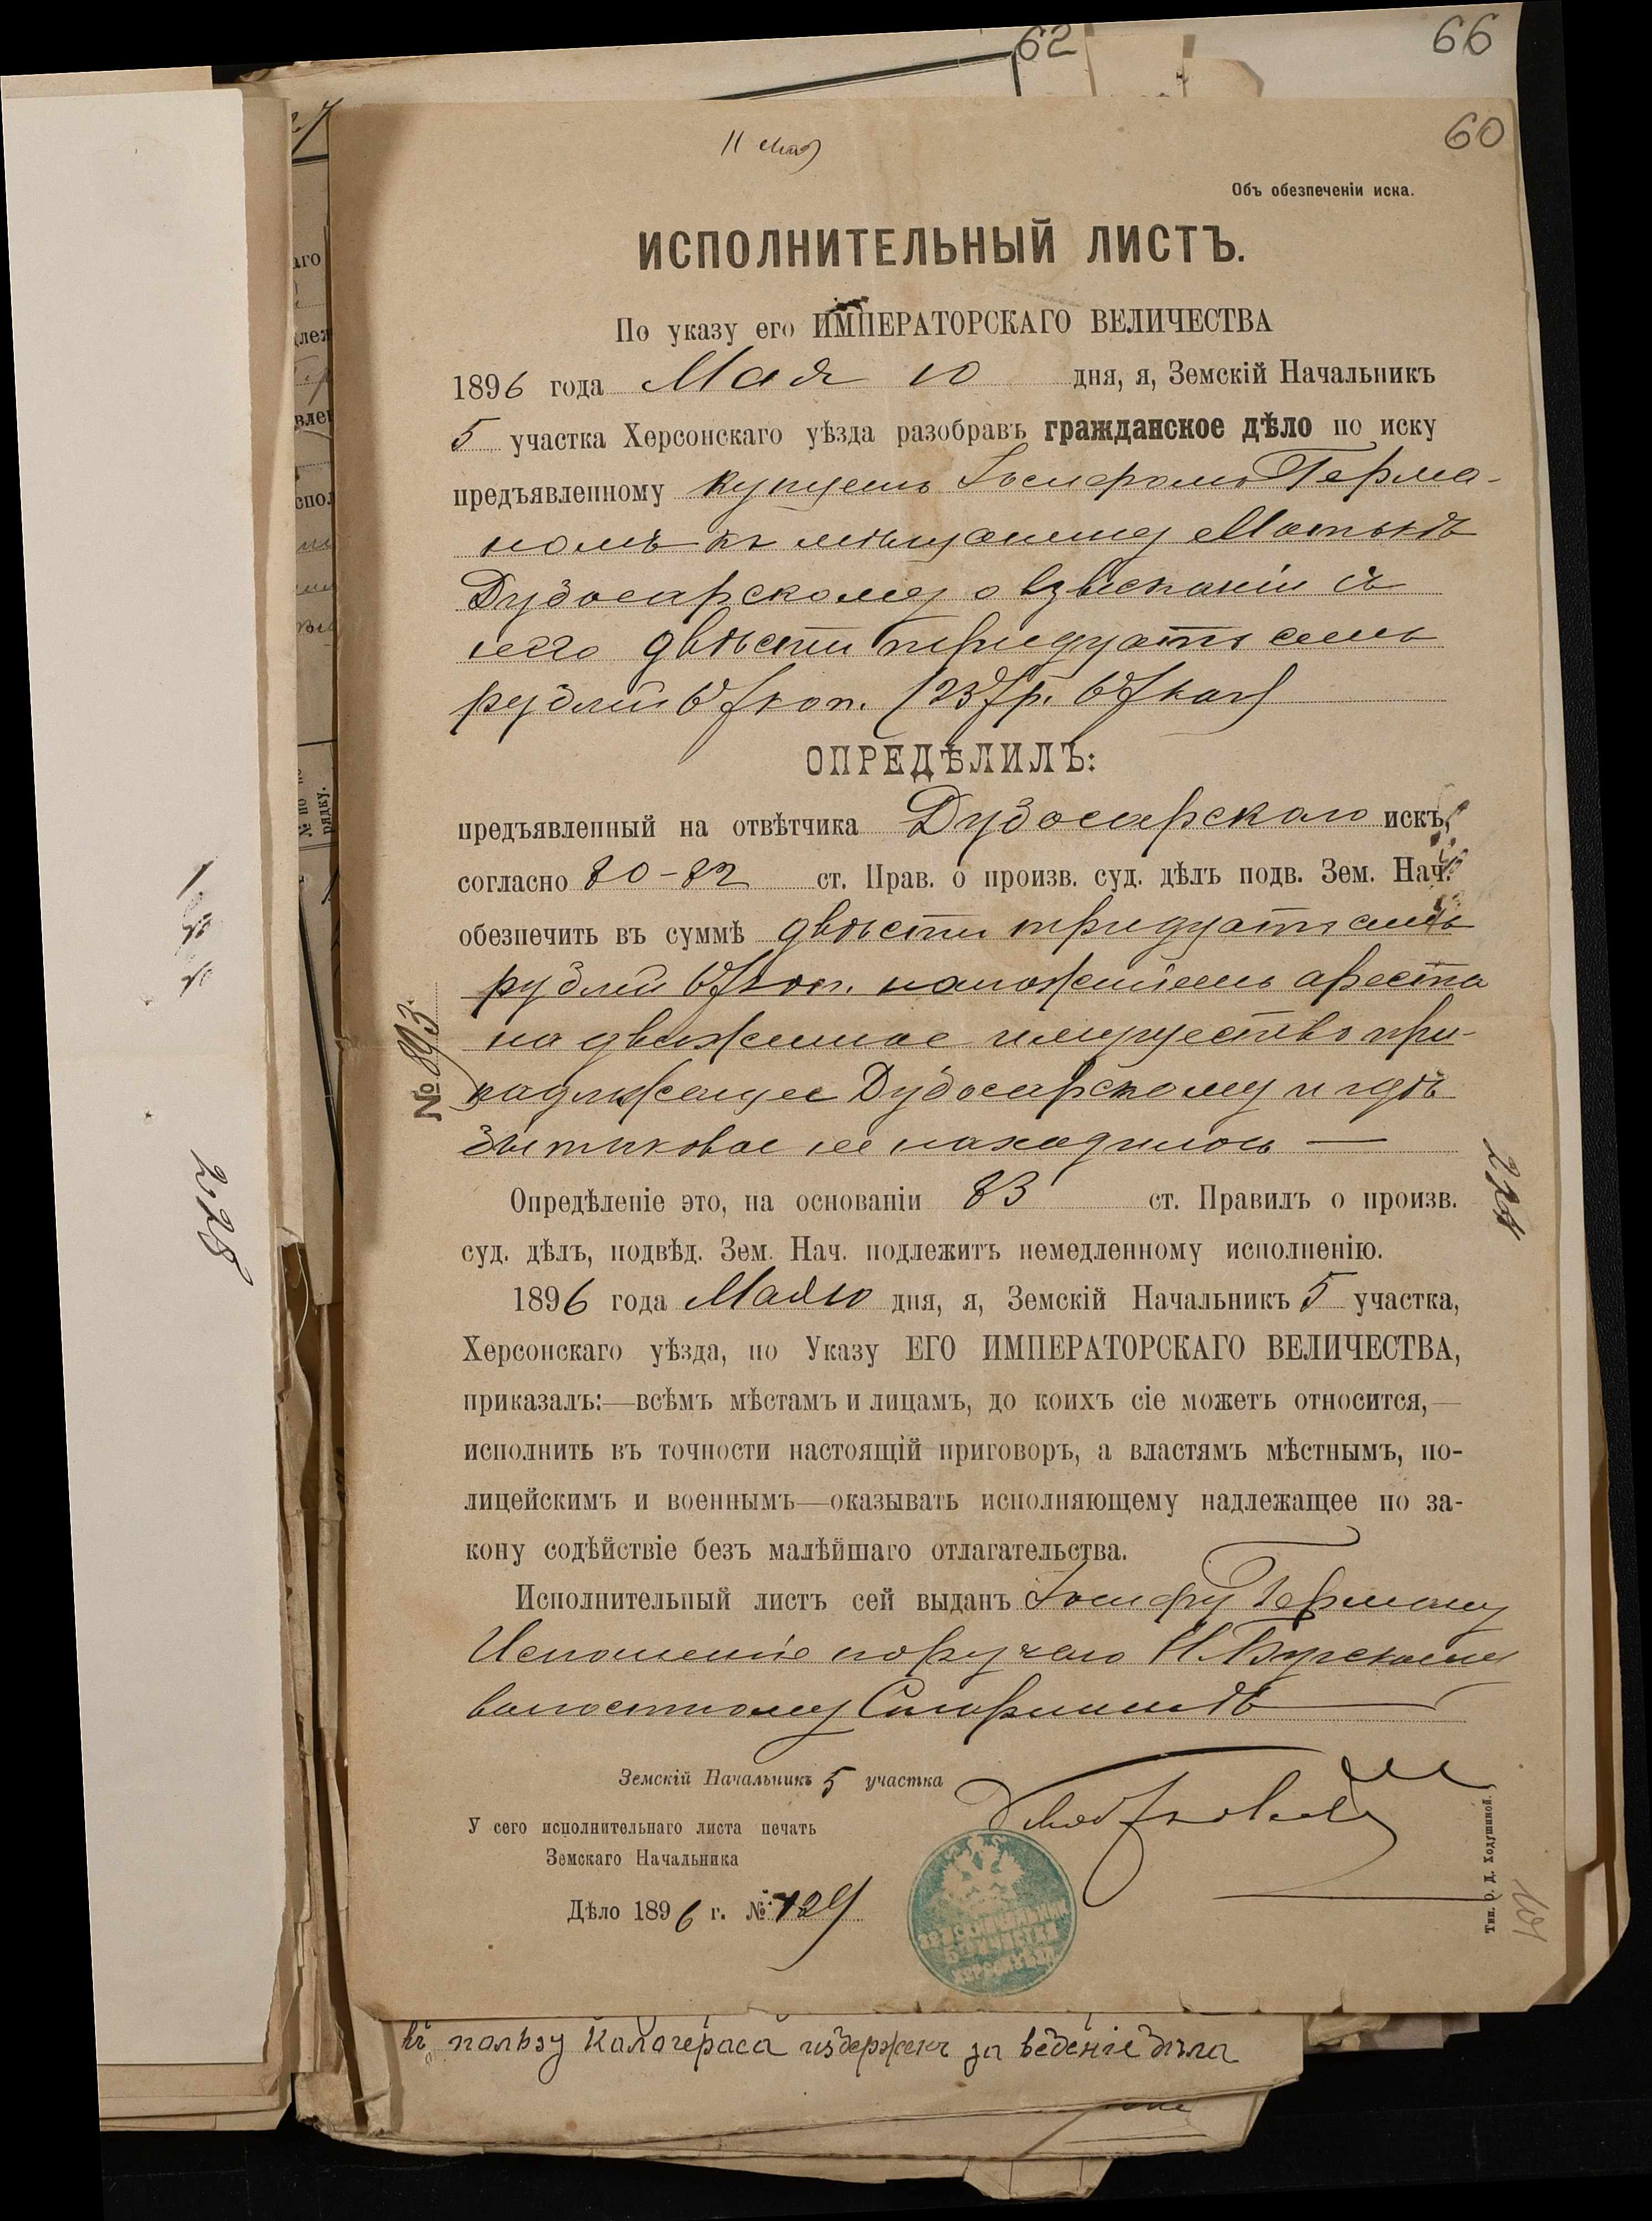 62
66
60
11 мая
Объ обезпеченіи иска.
ИСПОЛНИТЕЛЬНЫЙ ЛИСТЪ.
По указу его ИМПЕРАТОРСКАГО ВЕЛИЧЕСТВА
1896 года Мая 10 дня, я, Земскій Начальникъ
5 участка Херсонскаго уѣзда разобравъ гражданское дѣло по иску
предъявленному купцемъ Іосифомъ Герма-
номъ къ мѣщанину
Дубосарскому о взысканіи съ
него двѣсти тридцать семь
рублей 67 коп. (237 р. 67 коп)
ОПРЕДѢЛИЛЪ:
предъявленный на отвѣтчика Дубосарскаго искъ,
согласно 80-82 ст. Прав. о произв. суд. дѣлъ подв. Зем. Нач.
обезпечить въ суммѣ двѣсти тридцать семь
рублей 67 коп. наложеніемъ ареста
на движимое имущество при-
надлежащее Дубосарскому и гдѣ
бы таковое не находилось —
№ 893.
Опредѣленіе это, на основаніи 83 ст. Правилъ о произв.
суд. дѣлъ, подвѣд. Зем. Нач. подлежитъ немедленному исполненію.
1896 года Мая 10 дня, я, Земскій Начальникъ 5 участка,
Херсонскаго уѣзда, по Указу ЕГО ИМПЕРАТОРСКАГО ВЕЛИЧЕСТВА,
приказалъ:—всѣмъ мѣстамъ и лицамъ, до коихъ сіе можетъ относится,—
исполнить въ точности настоящій приговоръ, а властямъ мѣстнымъ, по-
лицейскимъ и военнымъ—оказывать исполняющему надлежащее по за-
кону содѣйствіе безъ малѣйшаго отлагательства.
Исполнительный листъ сей выданъ Іосифу Герману
Исполненіе поручаю Н. Бугскому
волостному Старшинѣ
Земскій Начальникъ 5 участка
У сего исполнительнаго листа печать
Земскаго Начальника
Дѣло 1896 г. № 129
Тип. О. Д. Ходушиной.
въ пользу Калогераса издержекъ за веденіе дѣла